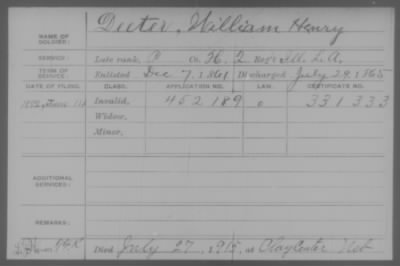 NAME OF SOLDIER: Deeter, William Henry
SERVICE: Late rank, P Co. H, 2 Reg't Ill. L. A.
TERM OF SERVICE: Enlisted Dec 7, 1861 Discharged July 29, 1865
DATE OF FILING. CLASS. APPLICATION NO. LAW. CERTIFICATE NO.
1882, June 14 Invalid, 452189 331333
Widow,
Minor,
ADDITIONAL SERVICES:
REMARKS:
Died July 27, 1915, at Clay Center Neb